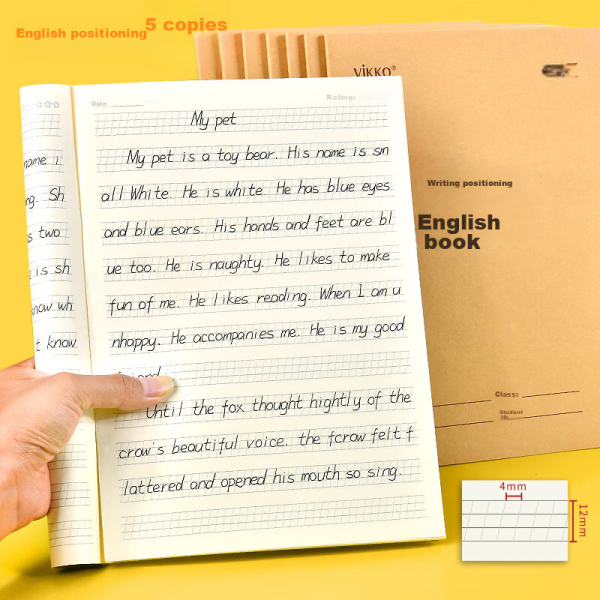 English positioning 5 copies
VIKKO®
Date
Rating:
My pet
My pet is a toy bear. His name is sm
all White. He is white He has blue eyes
and blue ears. His hands and feet are bl
ue too. He is naughty. He likes to make
fun of me. He likes reading. When I am u
nhappy. He accompanies me. He is my good
friend
Until the fox thought hightly of the
crow's beautiful voice. the fcrow felt f
lattered and opened his mouth so sing.
name i
ng. Sh
s two
is sh
know wh
t know
Writing positioning
English
book
Class:
Student
ID:
4mm
12mm